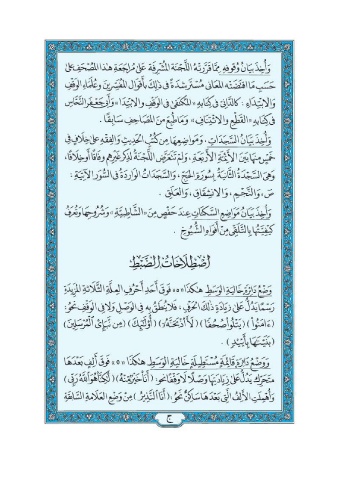 وَأُخِذَ بَيَانُ وُقُوفِهِ مِمَّا قَرَّرَتْهُ اللَّجْنَةُ المُشْرِفَةُ عَلَى مُرَاجَعَةِ هٰذَا المُصْحَفِ عَلَى
حَسَبِ مَا اقْتَضَتْهُ المَعَانِي مُسْتَرْشِدَةً فِي ذٰلِكَ بِأَقْوَالِ المُفَسِّرِينَ وَعُلَمَاءِ الوَقْفِ
وَالِابْتِدَاءِ : كَالدَّانِيِّ فِي كِتَابِهِ «المُكْتَفَى فِي الوَقْفِ وَالِابْتِدَا» وَأَبِي جَعْفَرٍ النَّحَّاسِ
فِي كِتَابِهِ «القَطْعِ وَالِائْتِنَافِ» وَمَا طُبِعَ مِنَ المَصَاحِفِ سَابِقًا .
وَأُخِذَ بَيَانُ السَّجَدَاتِ ، وَمَوَاضِعِهَا مِنْ كُتُبِ الحَدِيثِ وَالفِقْهِ عَلَى خِلَافٍ فِي
خَمْسٍ مِنْهَا بَيْنَ الأَئِمَّةِ الأَرْبَعَةِ ، وَلَمْ تَتَعَرَّضِ اللَّجْنَةُ لِذِكْرِ غَيْرِهِمْ وِفَاقًا أَوْ خِلَافًا ،
وَهِيَ السَّجْدَةُ الثَّانِيَةُ بِسُورَةِ الحَجِّ ، وَالسَّجَدَاتُ الوَارِدَةُ فِي السُّوَرِ الآتِيَةِ :
صٓ ، وَالنَّجْمِ ، وَالِانْشِقَاقِ ، وَالعَلَقِ .
وَأُخِذَ بَيَانُ مَوَاضِعِ السَّكَتَاتِ عِنْدَ حَفْصٍ مِنَ «الشَّاطِبِيَّةِ» وَشُرُوحِهَا وَتُعْرَفُ
كَيْفِيَّتُهَا بِالتَّلَقِّي مِنْ أَفْوَاهِ الشُّيُوخِ .
اصْطِلَاحَاتُ الضَّبْطِ
وَضْعُ دَائِرَةٍ خَالِيَةِ الوَسَطِ هٰكَذَا «ه» فَوْقَ أَحَدِ أَحْرُفِ العِلَّةِ الثَّلَاثَةِ المَزِيدَةِ
رَسْمًا يَدُلُّ عَلَى زِيَادَةِ ذٰلِكَ الحَرْفِ ، فَلَا يُنْطَقُ بِهِ فِي الوَصْلِ وَلَا فِي الوَقْفِ نَحْوُ :
(ءَامَنُواْ) (يَتْلُواْ صُحُفًا) (لَأَاْذْبَحَنَّهُۥٓ) (أُوْلَٰٓئِكَ) (مِن نَّبَإِيْ ٱلْمُرْسَلِينَ)
(بَنَيْنَٰهَا بِأَيْيْدٍ) .
وَوَضْعُ دَائِرَةٍ قَائِمَةٍ مُسْتَطِيلَةٍ خَالِيَةِ الوَسَطِ هٰكَذَا «0» فَوْقَ أَلِفٍ بَعْدَهَا
مُتَحَرِّكٌ يَدُلُّ عَلَى زِيَادَتِهَا وَصْلًا لَا وَقْفًا نَحْوُ : (أَنَا۠ خَيْرٌ مِّنْهُ) (لَّٰكِنَّا۠ هُوَ ٱللَّهُ رَبِّي)
وَأُهْمِلَتِ الأَلِفُ الَّتِي بَعْدَهَا سَاكِنٌ نَحْوُ : (أَنَا ٱلنَّذِيرُ) مِنْ وَضْعِ العَلَامَةِ السَّابِقَةِ
ج